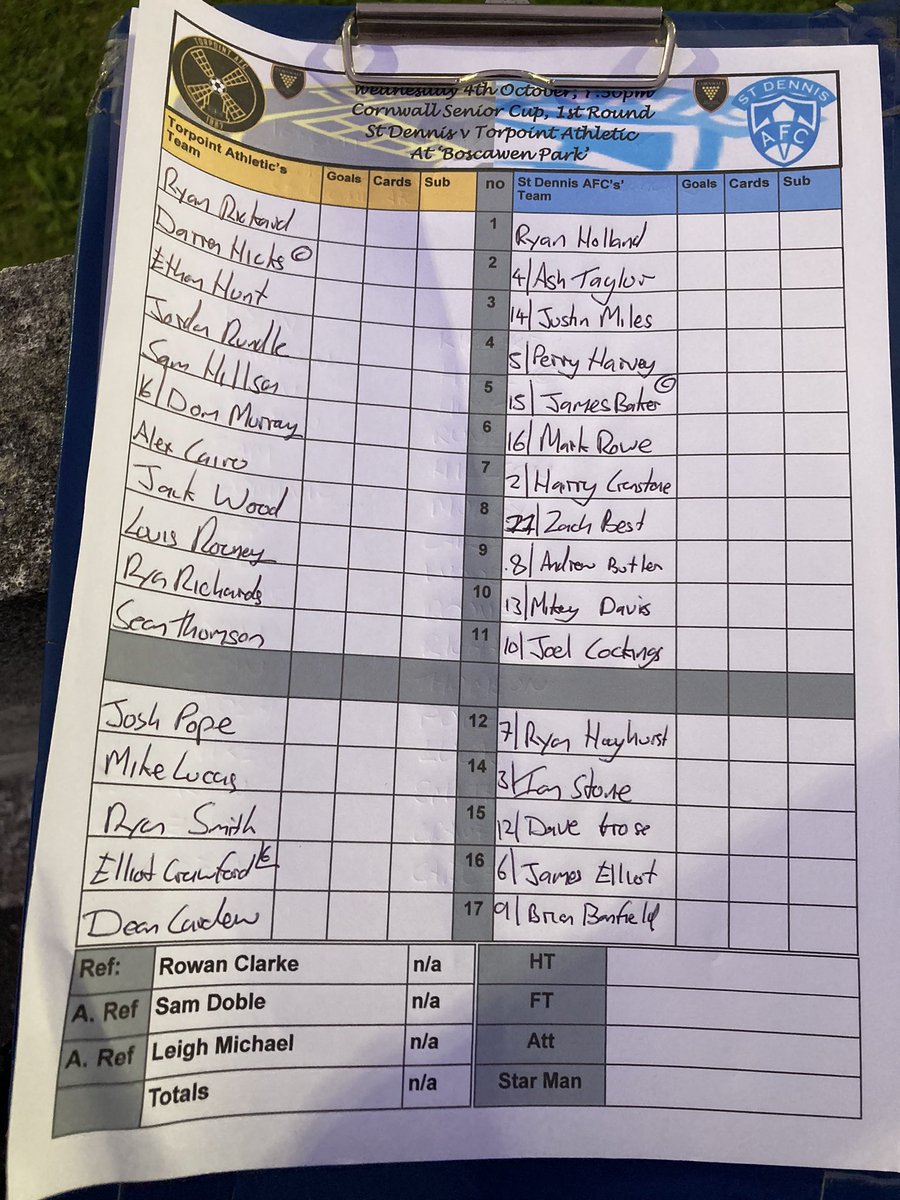 TORPOINT AFC
1887
Wednesday 4th October, 7:30pm
Cornwall Senior Cup, 1st Round
St Dennis v Torpoint Athletic
At 'Boscawen Park'
ST DENNIS
AFC
Torpoint Athletic's Team Goals Cards Sub no St Dennis AFC's' Team Goals Cards Sub
Ryan Rickard 1 Ryan Holland
Darren Hicks © 2 4/ Ash Taylor
Ethan Hunt 3 14/ Justin Miles
Jordan Rundle 4 5/ Perry Harvey
Sam Hillson 5 15/ James Baker ©
16/ Dom Murray 6 16/ Mark Rowe
Alex Cairo 7 2/ Harry
Jack Wood 8 Zach Best
Louis Rooney 9 8/ Andrew Butler
Ryan Richards 10 13/ Mikey Davis
Sean Thomson 11 10/ Joel Cockings
Josh Pope 12 7/ Ryan Hayhurst
Mike Lucas 14 3/ Ian Stone
Ryan Smith 15 12/ Dave
Elliot Crawford 16 6/ James Elliot
Dean Cardew 17 9/ Brian Banfield
Ref: Rowan Clarke n/a HT
A. Ref Sam Doble n/a FT
A. Ref Leigh Michael n/a Att
Totals n/a Star Man